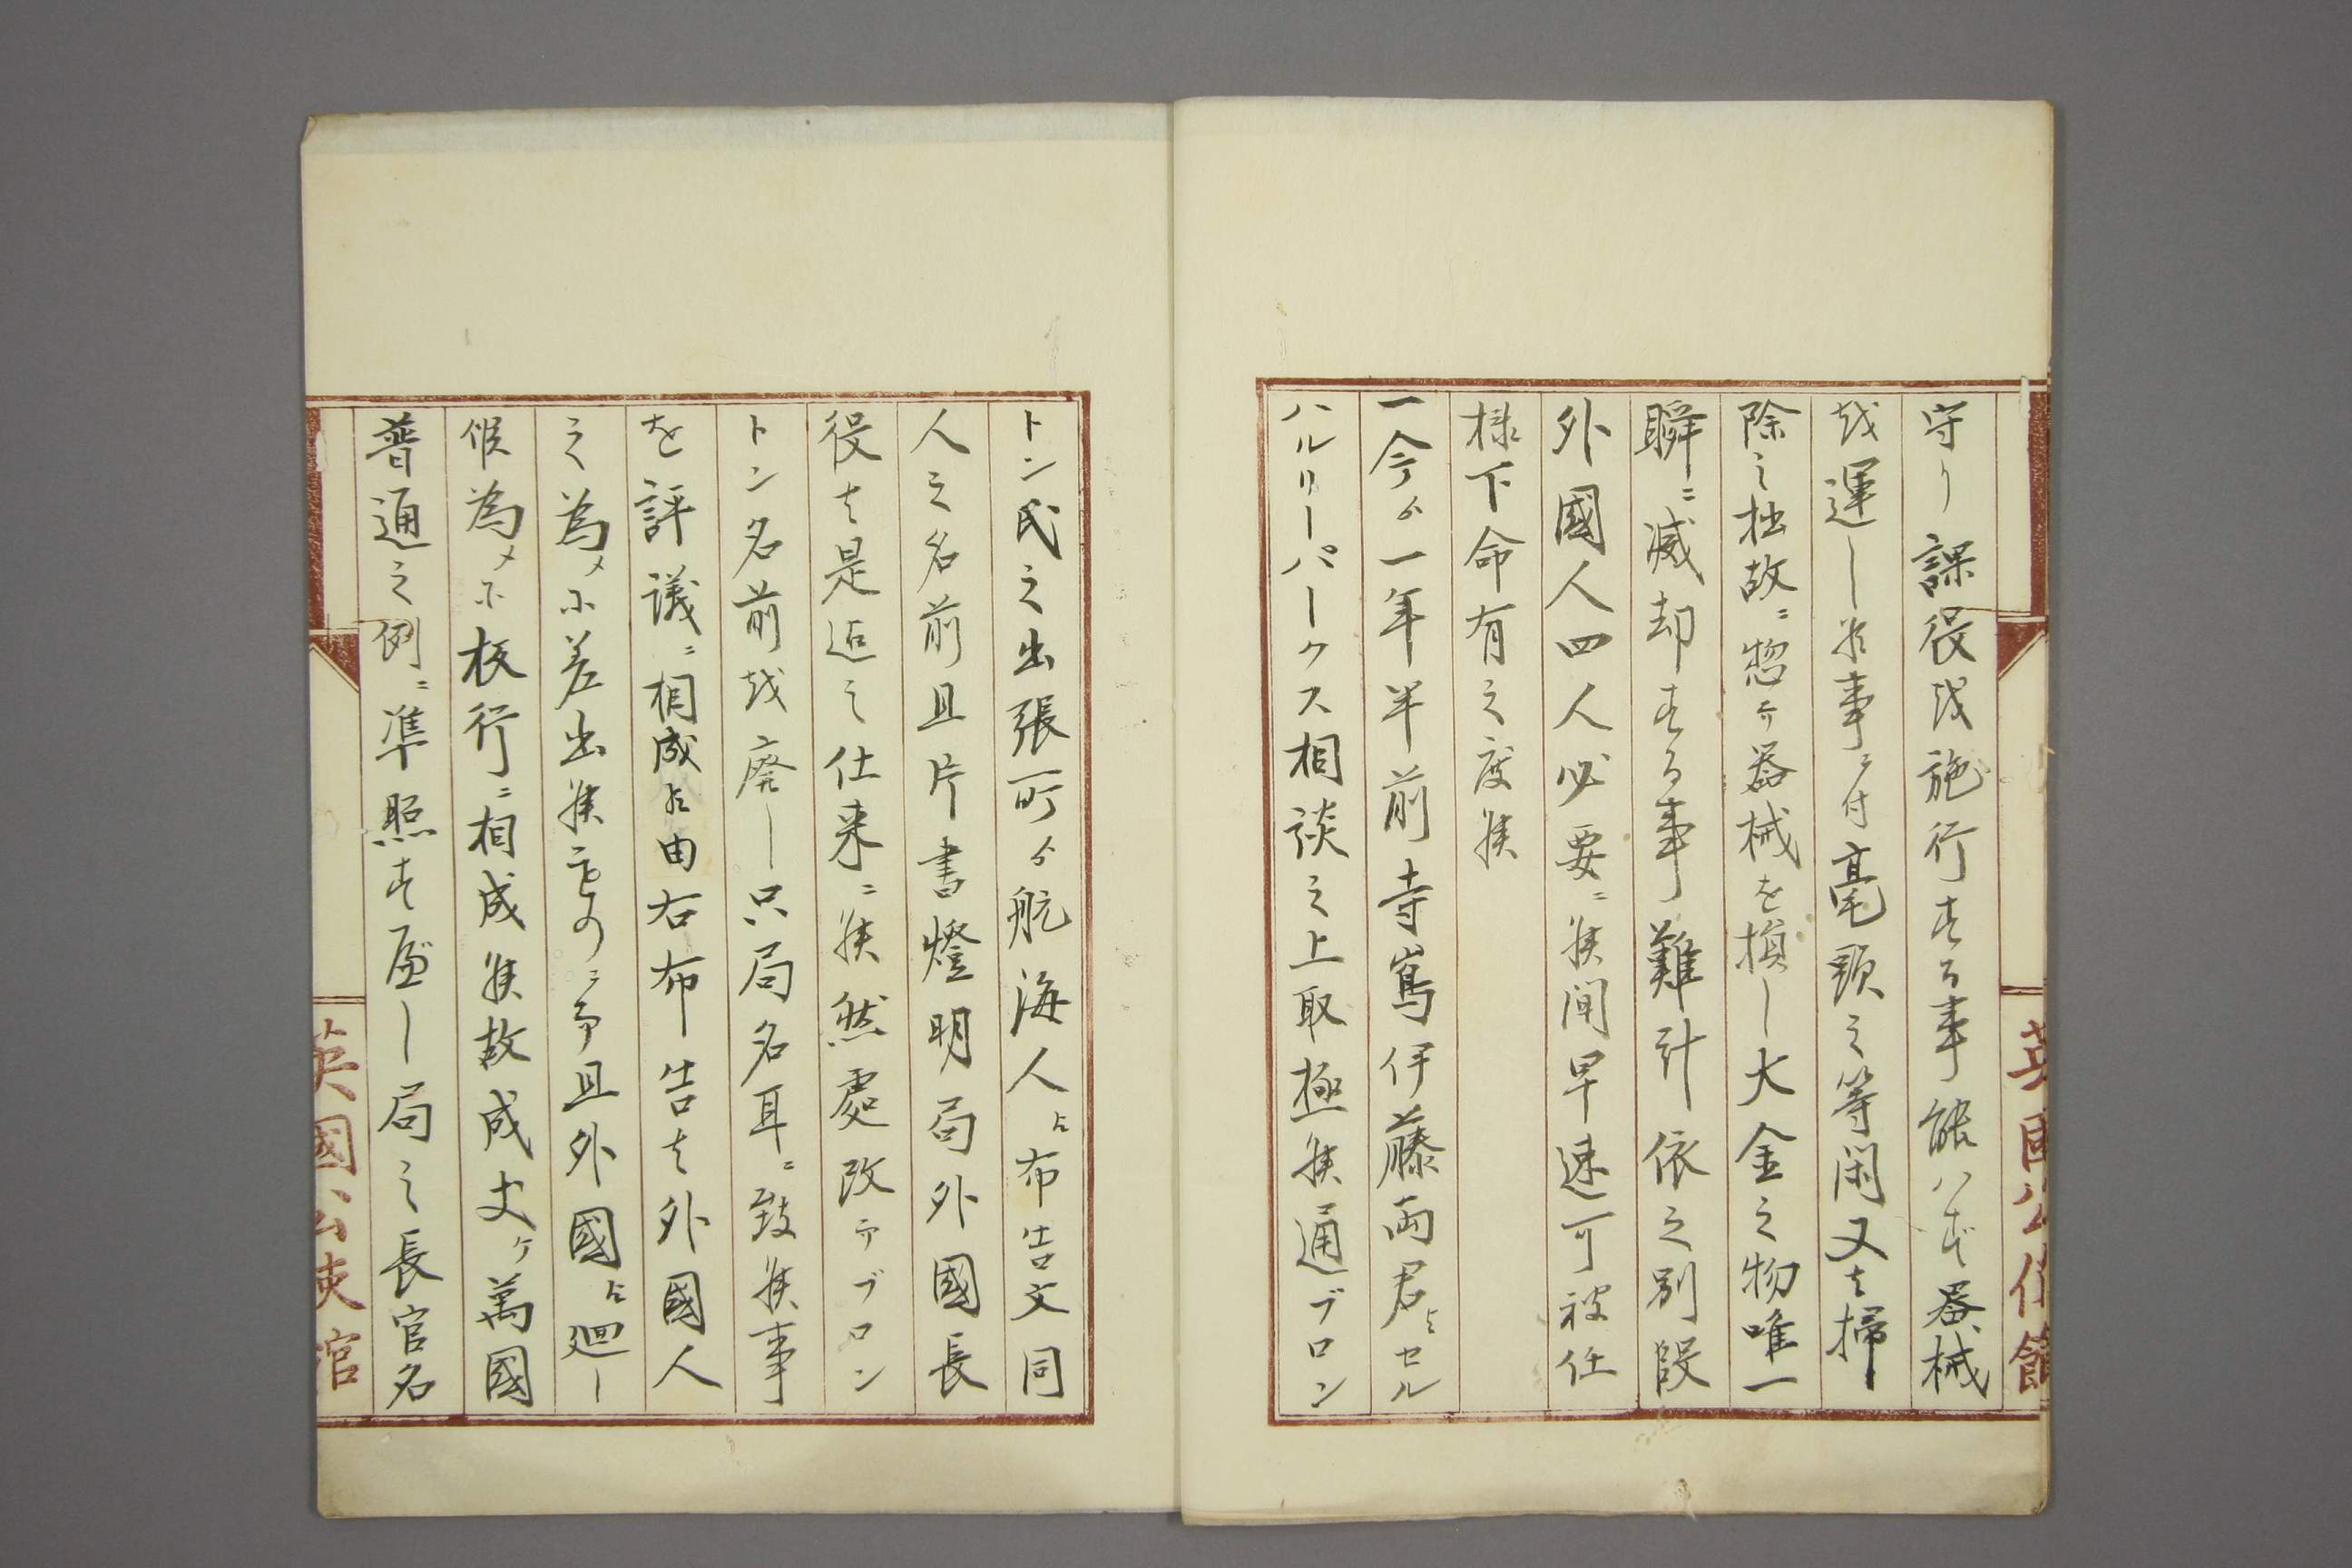 英國公使館
守り課役越施行する事能ハず器械
越運し候事ニ付毫頭之等閑又者掃
除之拙故ニ惣而器械を損し大金之物唯一
瞬ニ滅却する事難計依之別段
外國人四人必要ニ候間早速可被任
様下命有之度候
一今ゟ一年半前寺嶌伊藤両君とセル
ハルリーパークス相談之上取極候通ブロン
トン氏之出張所ゟ航海人ゟ布告文同
人之名前且片書燈明局外國長
役者是迠之仕来ニ候然處改而ブロン
トン名前越廃し只局名耳ニ致候事
を評議ニ相成候由右布告者外國人
之為メ尓差出候もの二而且外國ゟ廻し
候為メ尓板行ニ相成候故成丈ケ萬國
普通之例ニ準照す屋し局之長官名
英國公使館